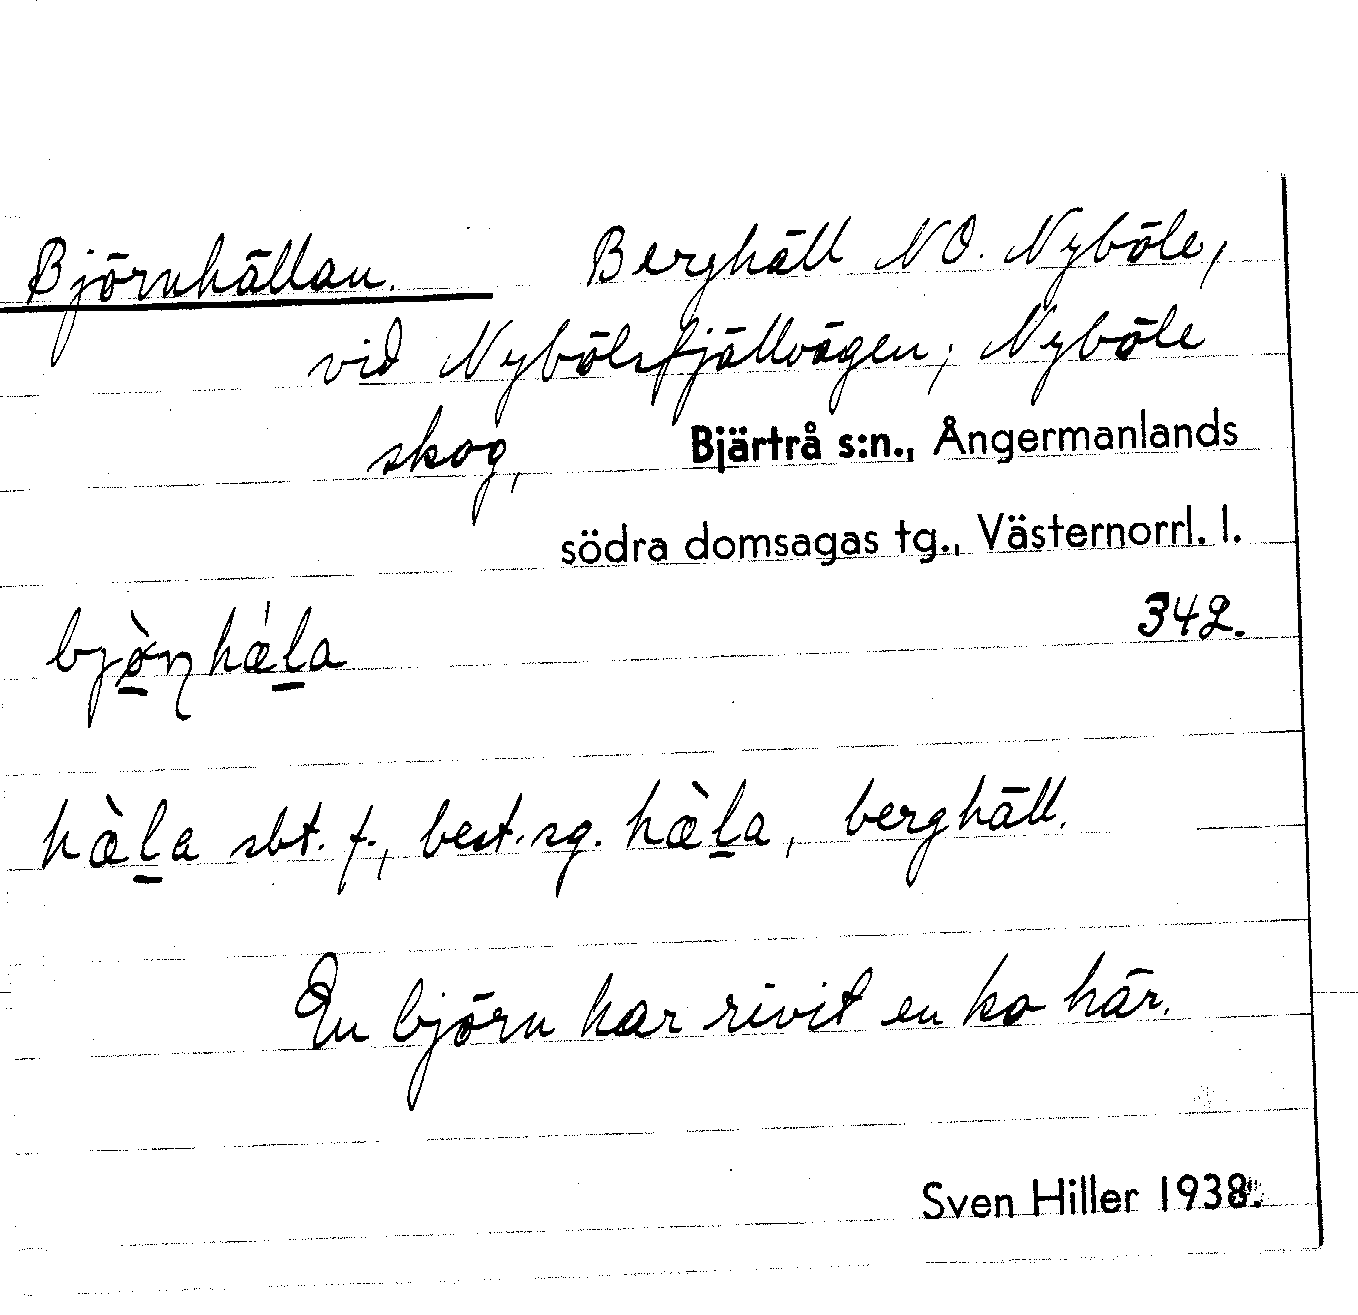 Björnhällan. Berghäll NO. Nyböle,
vid Nybölsfjällvägen; Nyböle
skog, Bjärtrå s:n., Ångermanlands
södra domsagas tg., Västernorrl. l.
bjò̲ɳhǽl̲a 342.
hæ̀l̲a sbt. f., best. sg. hæ̀l̲a, berghäll.
En björn har rivit en ko här.
Sven Hiller 1938.